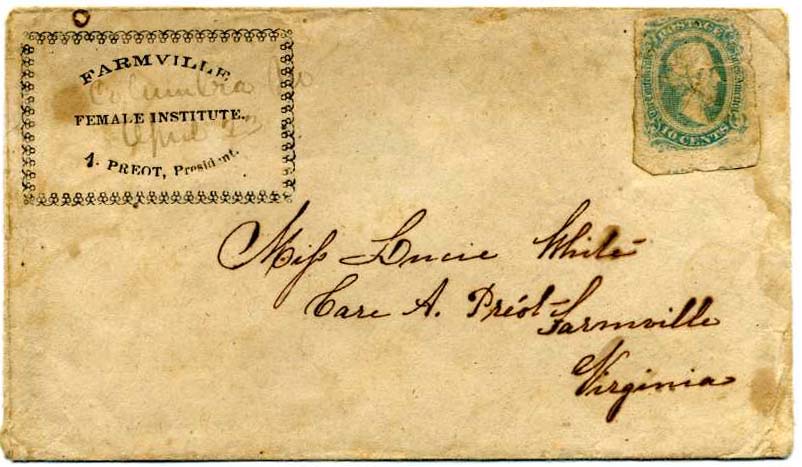 FARMVILLE
Columbia
FEMALE INSTITUTE.
April 23
A. PREOT, President.
POSTAGE
TEN CENTS
Miſs Lucie White
Care A. Préot
Farmville
Virginia